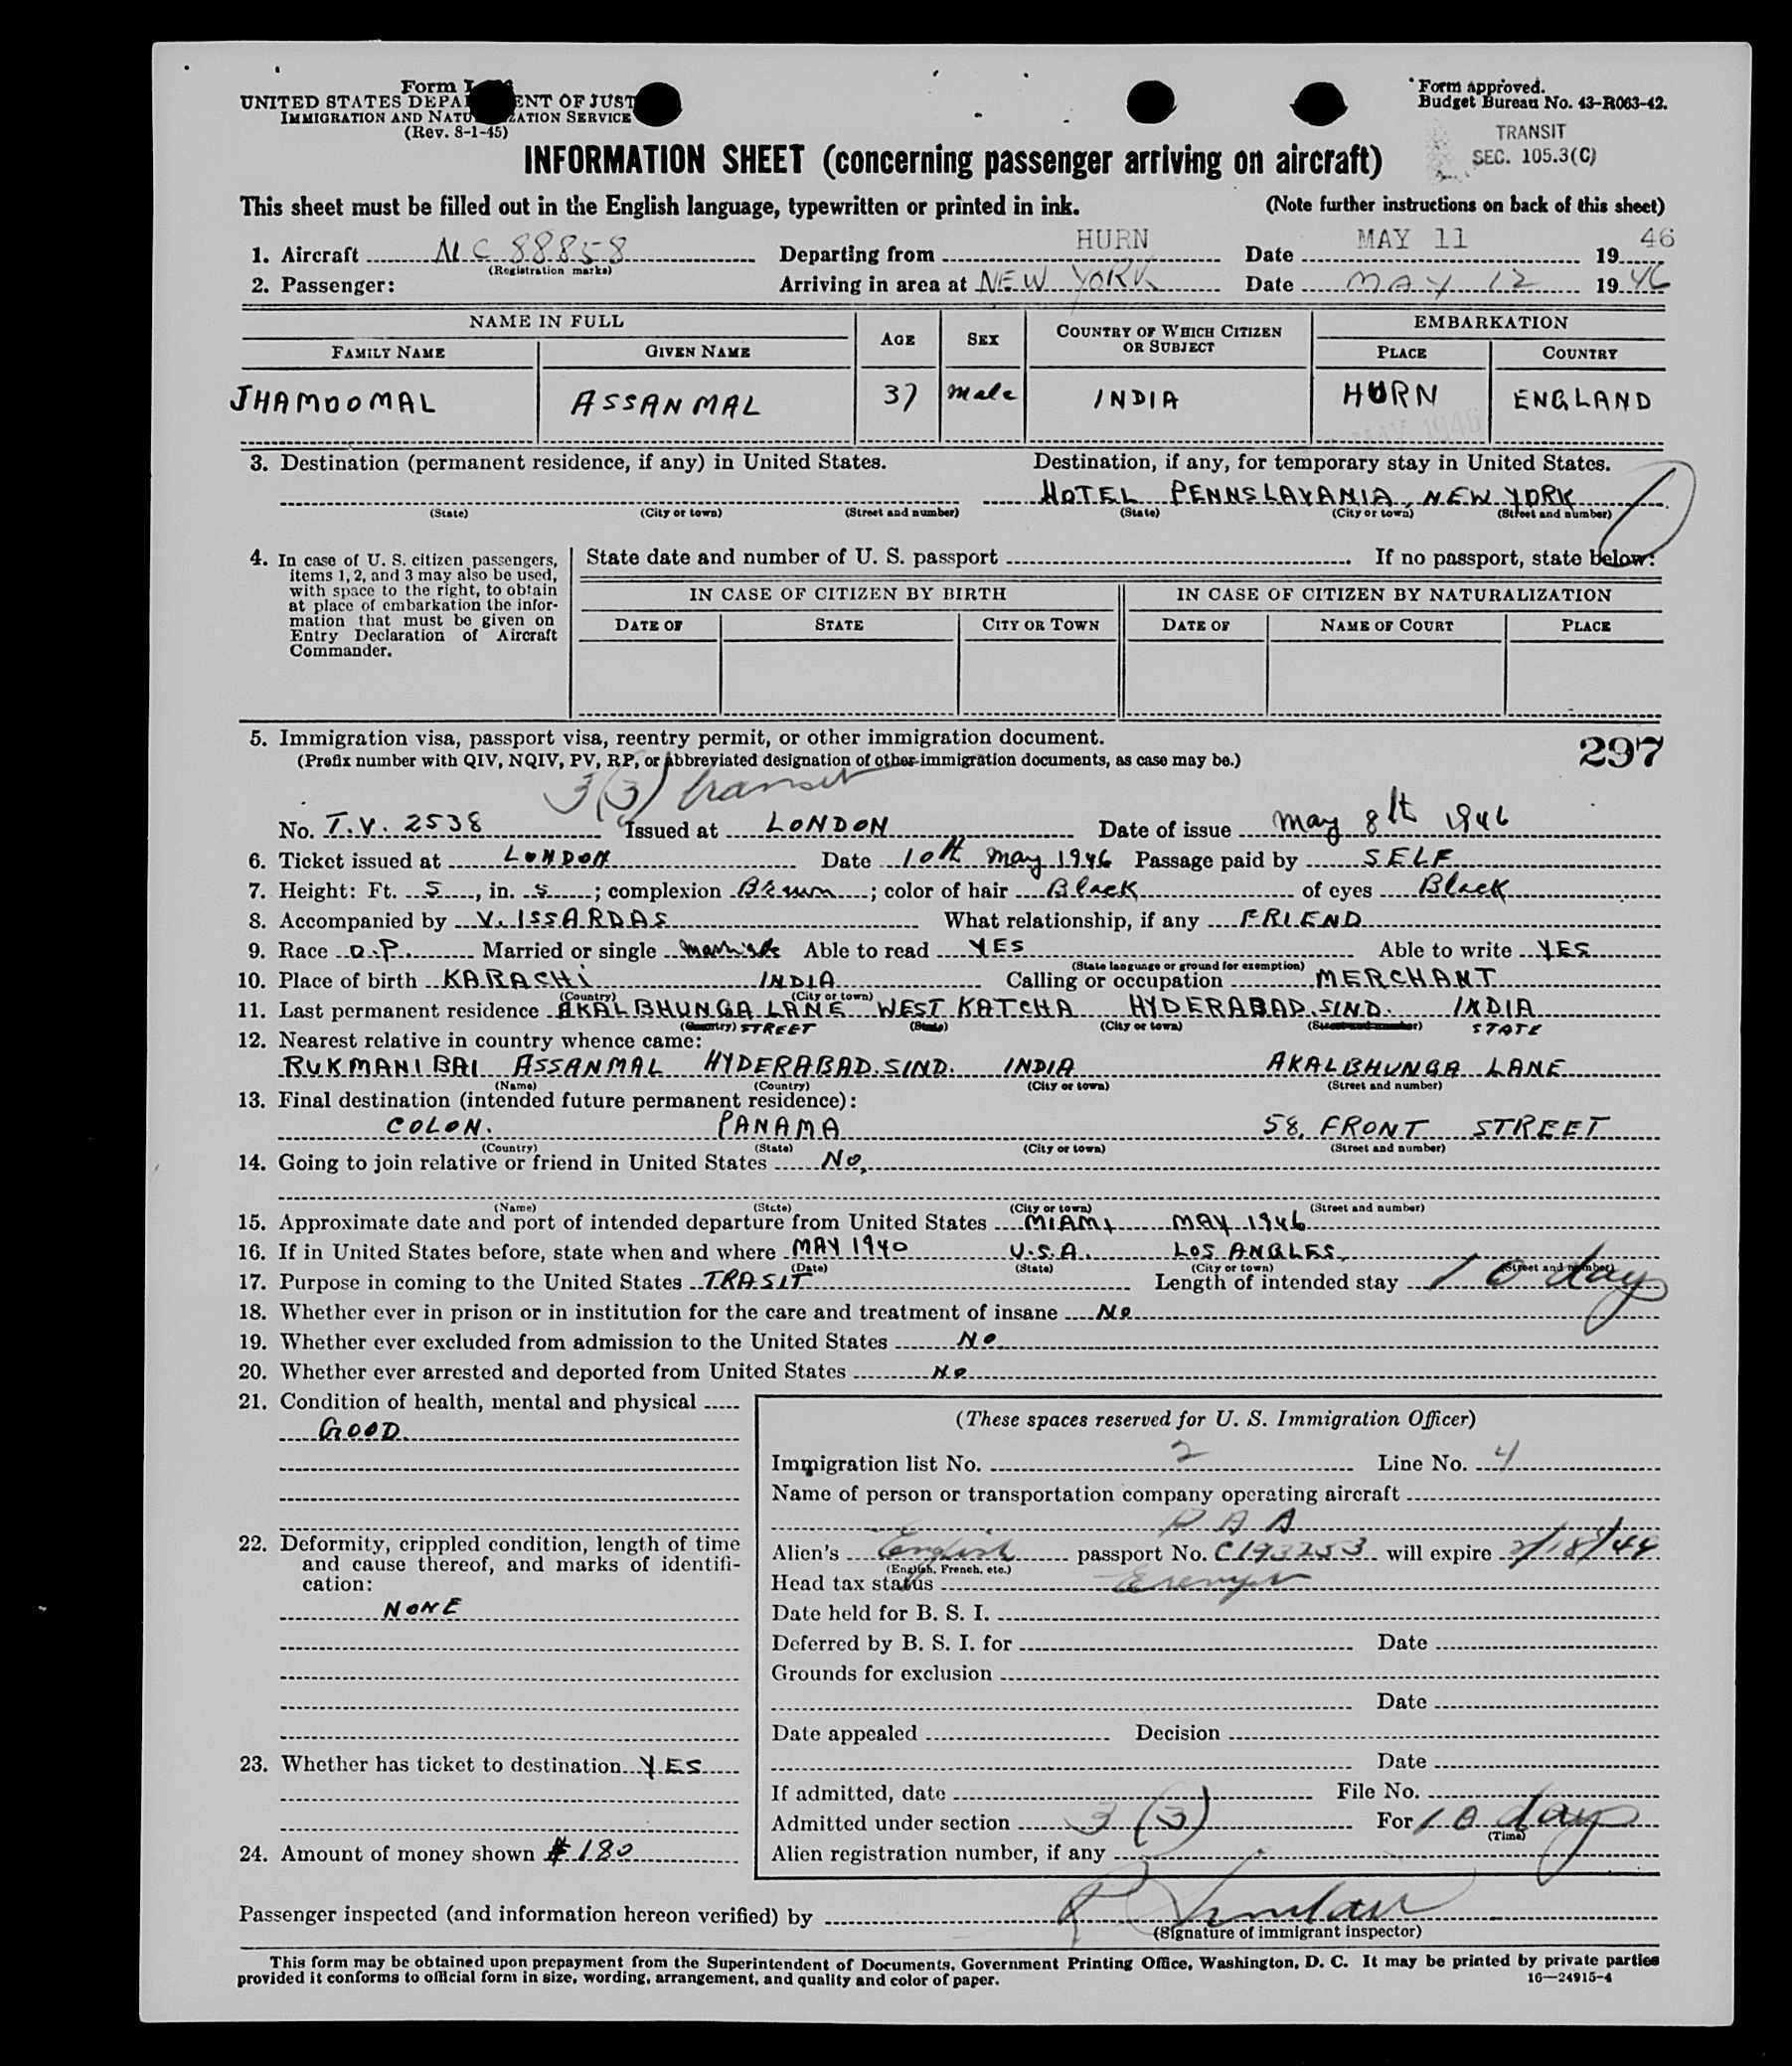 Form I-
UNITED STATES DEPA ENT OF JUST
IMMIGRATION AND NATU ZATION SERVICE
(Rev. 8-1-45)
Form approved.
Budget Bureau No. 43-R063-42.
TRANSIT
SEC. 105.3(C)
INFORMATION SHEET (concerning passenger arriving on aircraft)
This sheet must be filled out in the English language, typewritten or printed in ink. (Note further instructions on back of this sheet)
1. Aircraft NC 88858 Departing from HURN Date MAY 11 1946
(Registration marks)
2. Passenger: Arriving in area at NEW YORK Date MAY 12 1946
NAME IN FULL AGE SEX COUNTRY OF WHICH CITIZEN OR SUBJECT EMBARKATION
FAMILY NAME GIVEN NAME PLACE COUNTRY
JHAMOOMAL ASSANMAL 37 Male INDIA HURN ENGLAND
3. Destination (permanent residence, if any) in United States. Destination, if any, for temporary stay in United States.
HOTEL PENNSLAVANIA, NEW YORK
(State) (City or town) (Street and number) (State) (City or town) (Street and number)
4. In case of U. S. citizen passengers, items 1, 2, and 3 may also be used, with space to the right, to obtain at place of embarkation the information that must be given on Entry Declaration of Aircraft Commander.
State date and number of U. S. passport . If no passport, state below:
IN CASE OF CITIZEN BY BIRTH IN CASE OF CITIZEN BY NATURALIZATION
DATE OF STATE CITY OR TOWN DATE OF NAME OF COURT PLACE
5. Immigration visa, passport visa, reentry permit, or other immigration document.
(Prefix number with QIV, NQIV, PV, RP, or abbreviated designation of other immigration documents, as case may be.)
297
3(3) transit
No. T.V. 2538 Issued at LONDON Date of issue May 8th 1946
6. Ticket issued at LONDON Date 10th May 1946 Passage paid by SELF
7. Height: Ft. 5, in. 5; complexion Brown; color of hair Black of eyes Black
8. Accompanied by V. ISSARDAS What relationship, if any FRIEND
9. Race O.P. Married or single Able to read YES Able to write YES
(State language or ground for exemption)
10. Place of birth KARACHI INDIA Calling or occupation MERCHANT
(Country) (City or town)
11. Last permanent residence AKALBHUNGA LANE WEST KATCHA HYDERABAD.SIND. INDIA
(Country) STREET (State) (City or town) (Street and number) STATE
12. Nearest relative in country whence came:
RUKMANIBAI ASSANMAL HYDERABAD.SIND. INDIA AKALBHUNGA LANE
(Name) (Country) (City or town) (Street and number)
13. Final destination (intended future permanent residence):
COLON. PANAMA 58, FRONT STREET
(Country) (State) (City or town) (Street and number)
14. Going to join relative or friend in United States NO,
(Name) (State) (City or town) (Street and number)
15. Approximate date and port of intended departure from United States MIAMI MAY 1946
16. If in United States before, state when and where MAY 1940 U.S.A. LOS ANGLES,
(Date) (State) (City or town) (Street and number)
17. Purpose in coming to the United States TRASIT Length of intended stay 10 day
18. Whether ever in prison or in institution for the care and treatment of insane No
19. Whether ever excluded from admission to the United States No.
20. Whether ever arrested and deported from United States No
21. Condition of health, mental and physical
GOOD
22. Deformity, crippled condition, length of time and cause thereof, and marks of identification:
NONE
23. Whether has ticket to destination YES
24. Amount of money shown $180
(These spaces reserved for U. S. Immigration Officer)
Immigration list No. 2 Line No. 4
Name of person or transportation company operating aircraft
P A A
Alien's English passport No. C193253 will expire
(English, French, etc.)
Head tax status
Date held for B. S. I.
Deferred by B. S. I. for Date
Grounds for exclusion
Date
Date appealed Decision
Date
If admitted, date File No.
Admitted under section 3 (3) For 10 day
(Time)
Alien registration number, if any
Passenger inspected (and information hereon verified) by
(Signature of immigrant inspector)
This form may be obtained upon prepayment from the Superintendent of Documents, Government Printing Office, Washington, D. C. It may be printed by private parties
provided it conforms to official form in size, wording, arrangement, and quality and color of paper. 16—24915-4